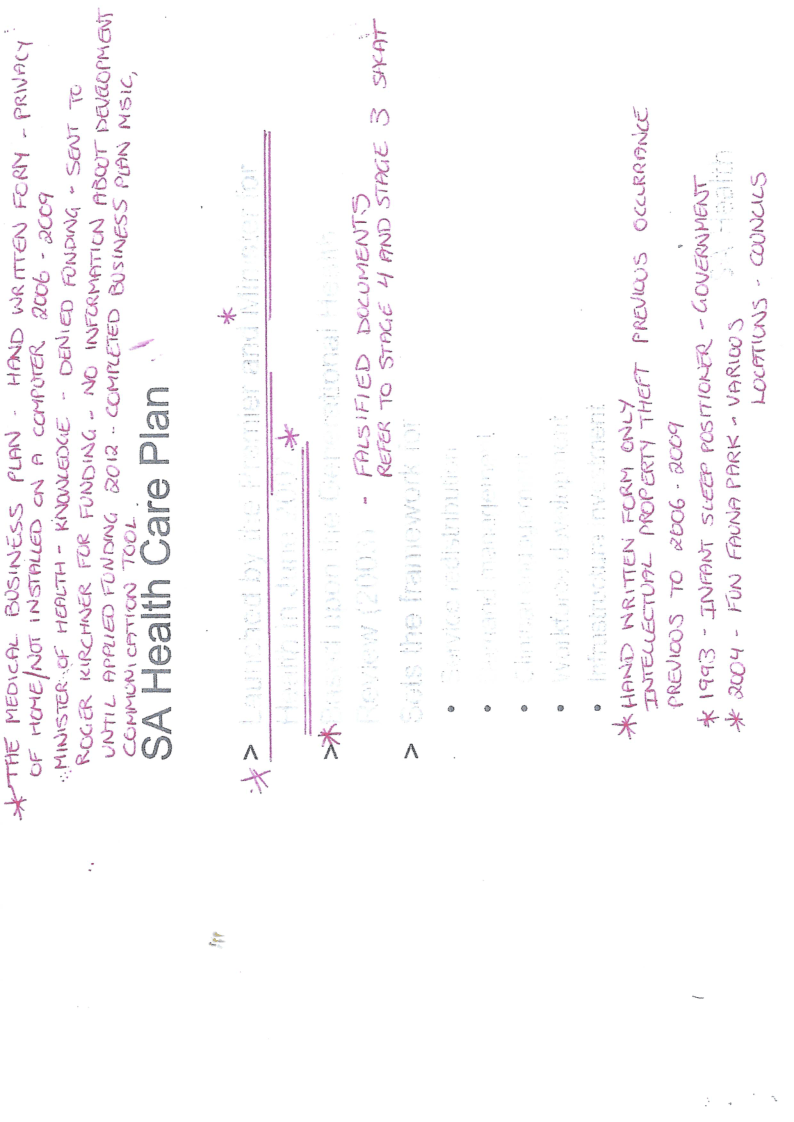 * THE MEDICAL BUSINESS PLAN - HAND WRITTEN FORM - PRIVACY
OF HOME/NOT INSTALLED ON A COMPUTER 2006 - 2009
MINISTER OF HEALTH - KNOWLEDGE - DENIED FUNDING - SENT TO
ROGER KIRCHNER FOR FUNDING - NO INFORMATION ABOUT DEVELOPMENT
UNTIL APPLIED FUNDING 2012 - COMPLETED BUSINESS PLAN MSIC,
COMMUNICATION TOOL.
SA Health Care Plan
*
* > Launched by the Premier and Minister for
Health in June *
>* Based upon the Generational Health
Review (200
- FALSIFIED DOCUMENTS
REFER TO STAGE 4 AND STAGE 3 SAKAT
> Sets the framework for
• Service redistribution
• Demand management
• Clinical
• Workforce development
• Infrastructure investment
* HAND WRITTEN FORM ONLY
INTELLECTUAL PROPERTY THEFT PREVIOUS OCCURRANCE
PREVIOUS TO 2006 - 2009
* 1993 - INFANT SLEEP POSITIONER - GOVERNMENT
SA Health
* 2004 - FUN FAUNA PARK - VARIOUS
LOCATIONS - COUNCILS